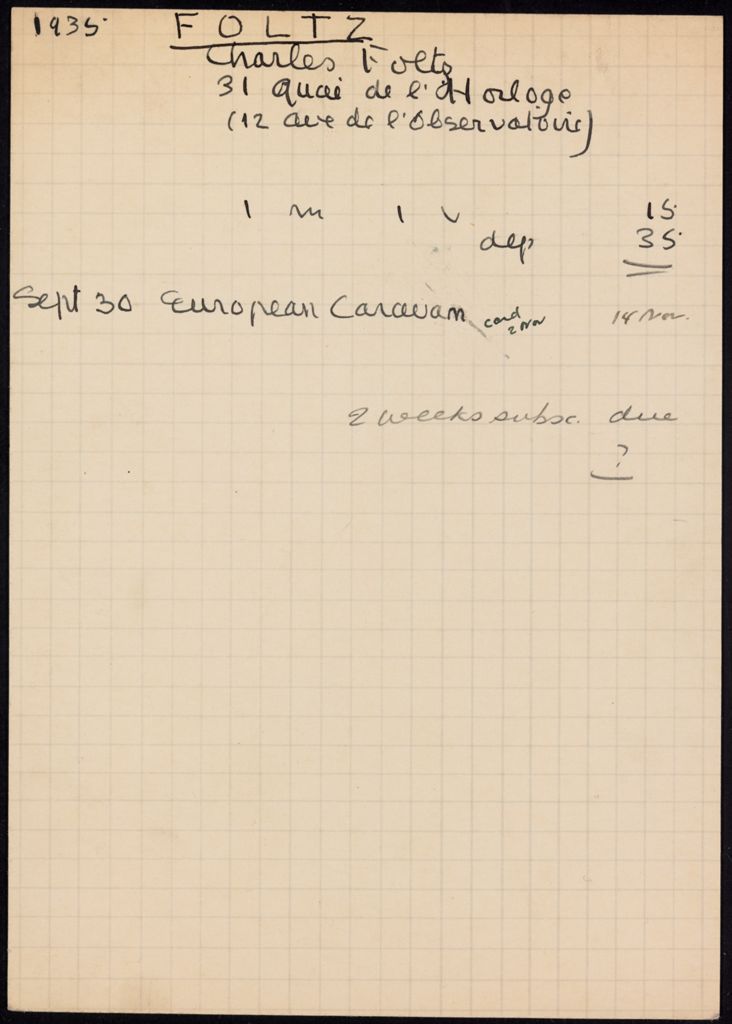 1935 FOLTZ
Charles Foltz
31 Quai de l'Horloge
(12 ave de l'Observatoire)
1 m 1 v 15
dep 35
Sept 30 European Caravan card 2 Nov 14 Nov.
2 weeks subsc. due
?